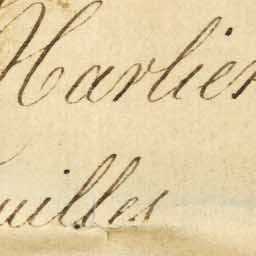 Harlier
uilles